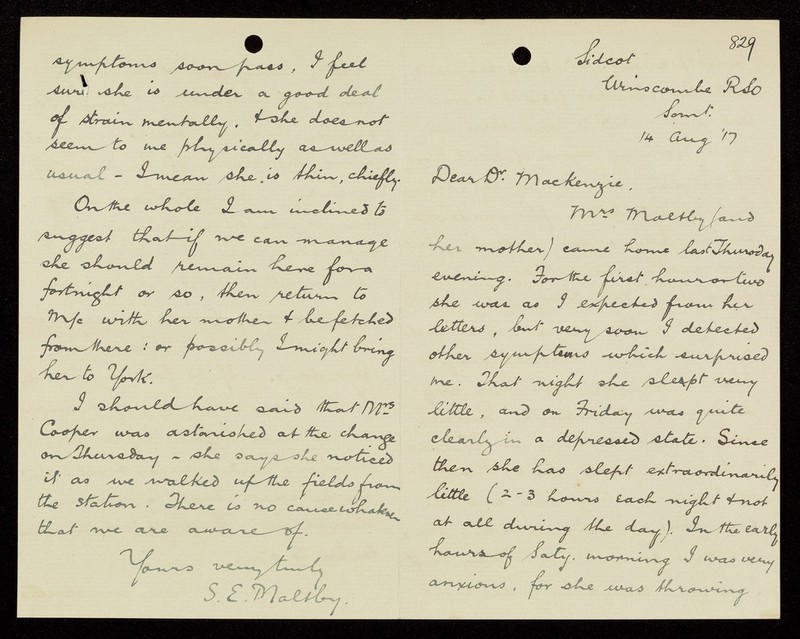 symptoms soon pass. I feel
sure she is under a good deal
of strain mentally, & she does not
seem to me physically as well as
usual – I mean she is thin, chiefly.
On the whole I am inclined to
suggest that if we can manage
she should remain here for a
fortnight or so, then return to
M/c with her mother & be fetched
from there : or possibly I might bring
her to York.
I should have said that Mrs
Cooper was astonished at the change
on Thursday – she says she noticed
it as we walked up the fields from
the station. There is no cause whatever
that we are aware of.
Yours very truly
S. E. Maltby.
829
Sidcot
Winscombe RSO
Somt.
14 Aug '17
Dear Dr. Mackenzie,
Mrs Maltby (and
her mother) came home last Thursday
evening. For the first hour or two
she was as I expected from her
letters, but very soon I detected
other symptoms which surprised
me. That night she slept very
little, and on Friday was quite
clearly in a depressed state. Since
then she has slept extraordinarily
little (2-3 hours each night & not
at all during the day). In the early
hours of Saty. morning I was very
anxious, for she was throwing